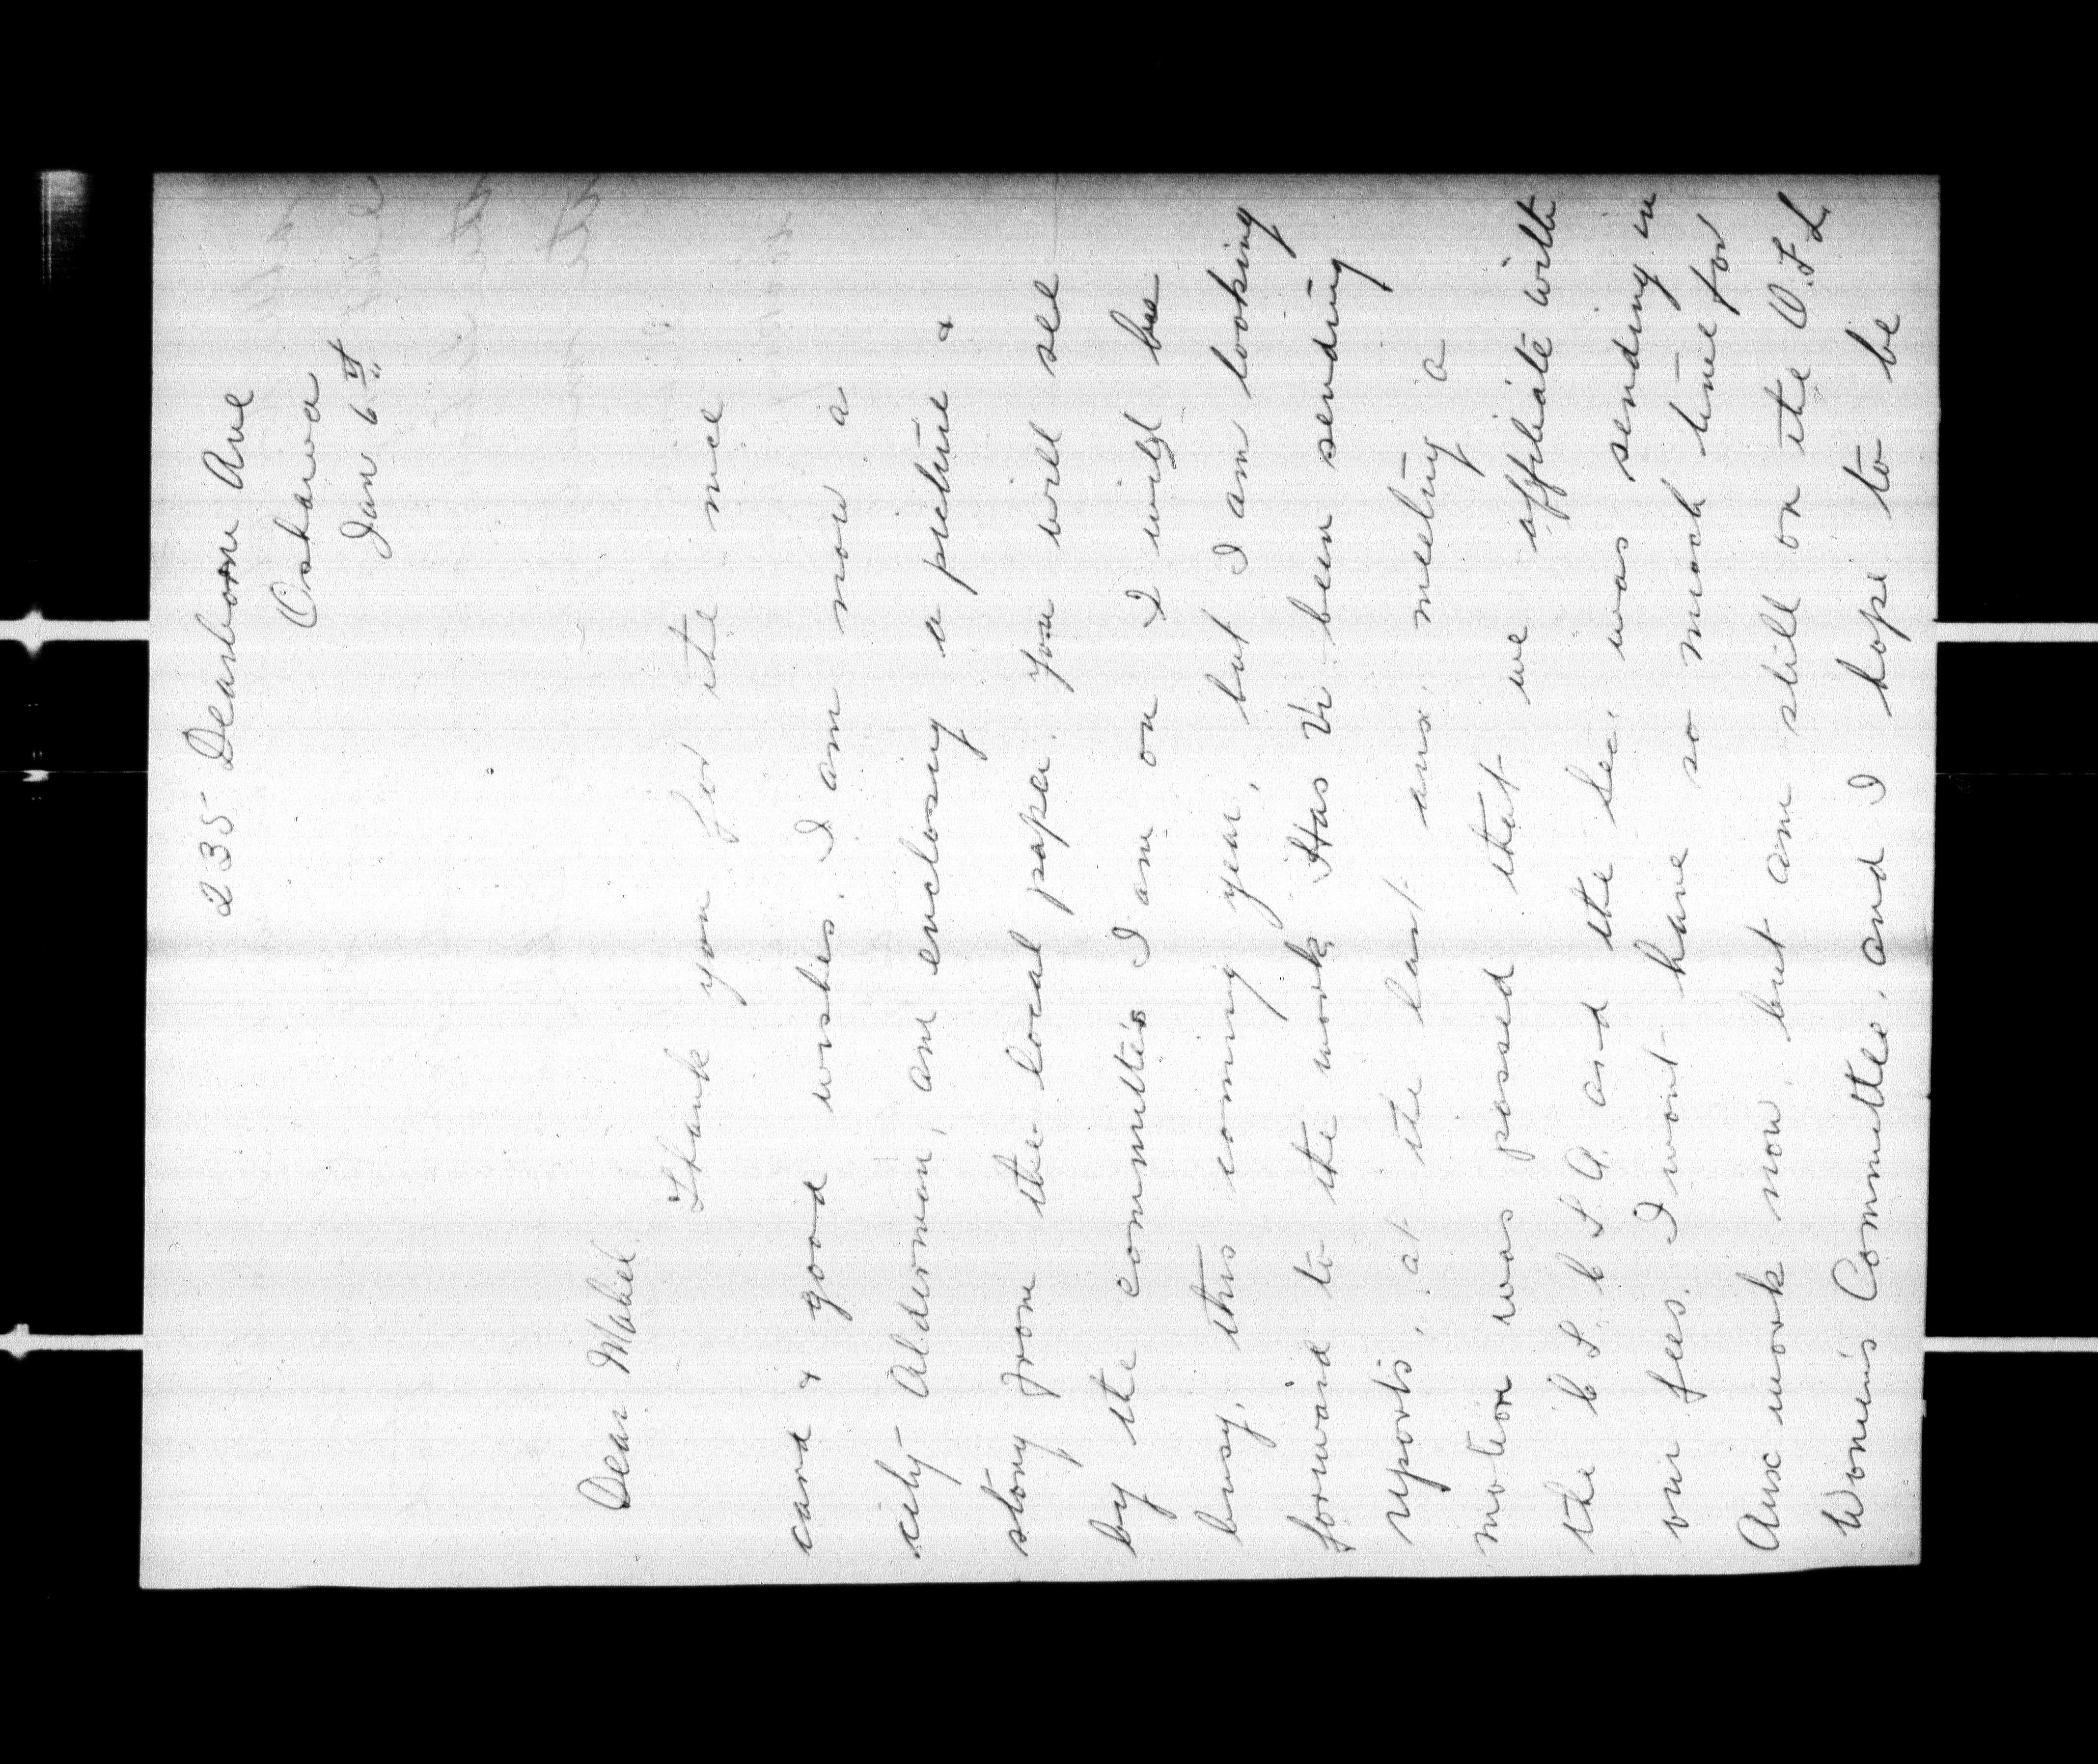 235 Dearborn Ave
Oshawa
Jan 6th
Dear Mabel.
Thank you for the nice
card & good wishes. I am now a
city Alderman, am enclosing a picture &
story from the local paper. You will see
by the committees I am on I will be
busy, this coming year, but I am looking
forward to the work. Has Vi been sending
reports, at the last aux, meeting a
motion was passed that we affiliate with
the C. L. C. L. A. and the Sec, was sending in
our fees. I wont have so much time for
Aux work now, but am still on the O.F.L.
Women's Committee, and I hope to be